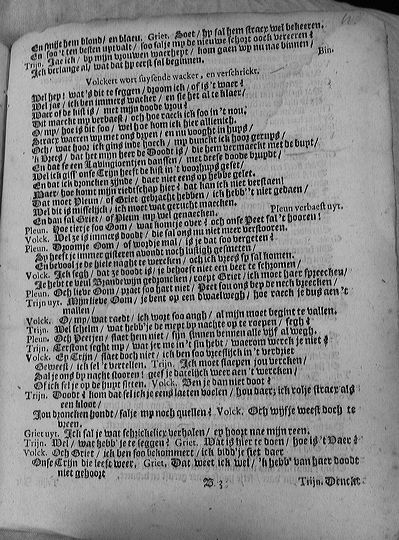 En smijt hem blond/ en blaeu. Griet. Soet/ hy sal hem stracx wel bekeeren.
En soo 't ten besten uytvalt/ soo salje mp de nieuwe schort oock vereeren?
Trijn. Jae ick/ by mijn vrouwen waerheyt/ kom gaen wy nu nae binnen/
Ick verlange al/ wat dat hy eerst sal beginnen. Bin.
Volckert wort suysende wacker, en verschrickt.
Wel hey! wat 's dit te seggen/ droom ick/ of is 't waer?
Wel jae/ ick ben immers wacker/ en sie het al te klaer/
Waer of be kist is/ met mijn doode vrou?
Dit maeckt my verbaest/ och hoe raeck ick soo in 't nou.
O/ my/ hoe is dit soo/ wel hoe kom ick hier allienich.
Stracx warren wy met ons dryen/ en nu
Och/ wat hoor ick gins inde hoeck/ my dunckt ick hoor gerups/
'k Vrees/ dat het mijn heer de Doodt is/ die hem vermaeckt met de
En dat se een
Wel ick giss' onse Trijn heeft de kist in 't voorhuys geset/
En dat ick droncken zijnde/ daer niet eens op hebbe gelet.
Maer hoe komt mijn rietschap hier? dat kan ick niet verstaen!
Dat moet Pleun/ of Griet gebracht hebben/ ick hebb' 't niet gedaen/
Wel dit is misselijck/ ick moet wat gerucht maecken. Pleun verbaest uyt.
En dan sal Griet/ of Pleun my wel genaecken.
Pleun. Hoe tier je soo Oom/ wat homje over? och onse Peet sal 't hooren!
Volck. Wel ze is immers doodt/ die sal ons nu niet meer verstooren.
Pleun. Droomje Oom/ of wordje mal/ is je dat soo vergeten?
Sy heeft je immer gisteren avondt noch lustigh gesmeten/
En bevool je de hiele nacht te wercken/ och ick vrees sy sal komen.
Volck. Ick segh/ dat ze doodt is/ je behoeft niet een beet te schromen/
Je hebt te veul Brandewijn gedroncken/ roept Griet/ ick moet haer spreecken/
Pleun. Och lieve Oom/ praet soo hart niet/ Peet sou ons bey de neck breecken/
Trijn uyt. Mijn lieve Oom/ je bent op een dwaelwegh/ hoe raeck je dus aen 't
mallen/
Volck. O/ my/ wat raedt/ ick wort soo angh/ al mijn moet begint te vallen.
Trijn. Wel schelm/ wat hebb' je de mept by nachte op te roepen/ segh?
Pleun. Och Peetjen/ slaet hem niet/ sijn sinnen bennen alle vijf al wegh.
Trijn. Eerstont seght my/ wat je me in 't sin hebt/ waerom werck je niet?
Volck. Ey Trijn/ slaet doch niet/ ick ben soo vreeslijck in 't verdriet
Geweest/ ick sel 't vertellen. Trijn. Ick moet slaepen jou vercken/
Sal je ons by nacht stooren? geef je datelijck weer aen 't wercken/
Of ick sel je op de huyt sitten. Volck. Ben je dan niet doot?
Trijn. Doodt? kom dat sel ick je eens laeten voelen/ hou daer; ick rolje stracx als
een kloot/
Jou droncken hondt/ salje my noch quellen? Volck. Och wijfje weest doch te
vreen.
Griet uyt. Ick sal je wat schrickelijcx verhalen/ ey hoort nae mijn reen.
Trijn. Wel/ wat hebb' je te seggen? Griet. Wat is hier te doen/ hoe is 't Vaer?
Volck. Och Griet/ ick ben soo bekommert/ ick bidd' je siet daer
Onse Trijn die leeft weer. Griet. Dat weet ick wel/ 'k hebb' van haer doodt
niet gehoort
B 3 Trijn. Denckt